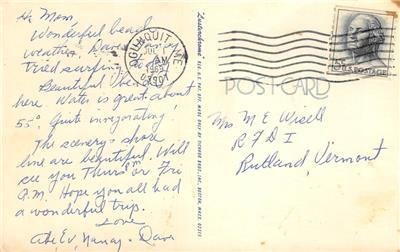 Hi Mom,
Wonderful beach
weather. Dave
tried surfing.
Beautiful
here. Water is great - about
55°. Quite invigorating!
The scenery + shore
line are beautiful. Will
see you Thurs or Fri
P.M. Hope you all had
a wonderful trip.
Love
Nancy - Dave
OGUNQUIT, ME
AM
03907
Lusterchrome
REG. U.S. PAT. OFF. MADE ONLY BY TICHNOR BROS., INC., BOSTON, MASS. 02215
POST CARD
5¢
U.S. POSTAGE
Mrs M E Wisell
R F D 1
Rutland, Vermont